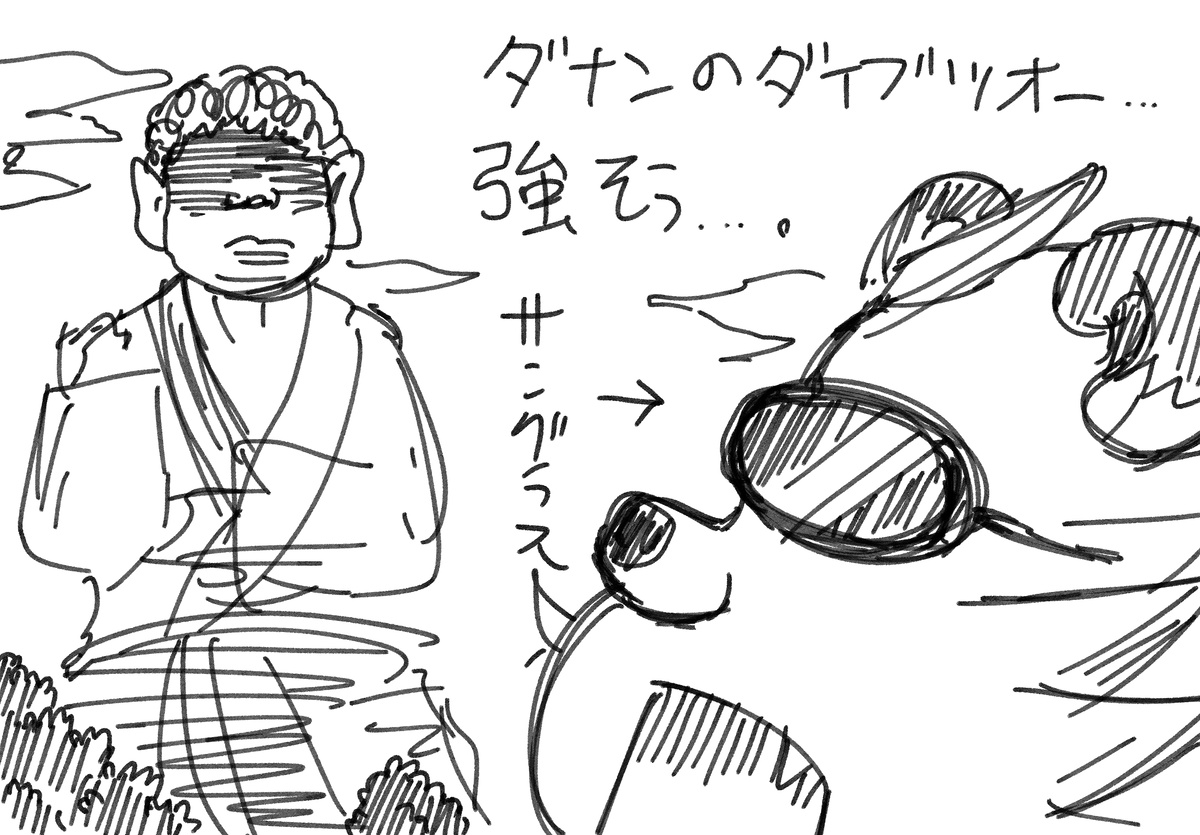 ダナンのダイブツオー…
強そう…。
サングラス→